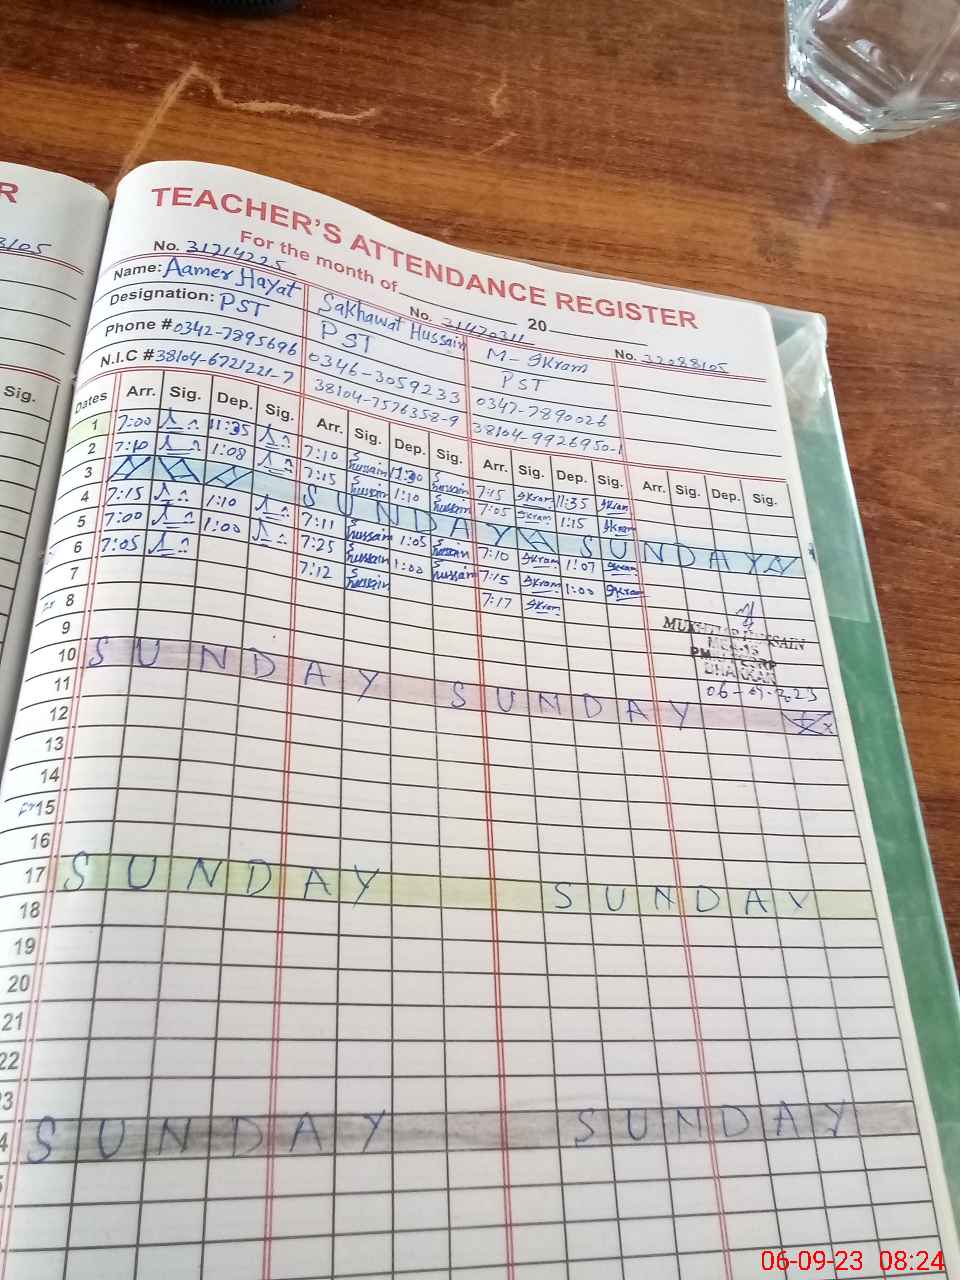 R
8105
Sig.
TEACHER'S ATTENDANCE REGISTER
For the month of 20
No. 31214225 No. 31420311 No. 32088105
Name: Aamer Hayat Sakhawat Hussain M- Ikram
Designation: PST PST PST
Phone # 0342-7895696 0346-3059233 0347-7890026
N.I.C # 38104-6721221-7 38104-7576358-9 38104-9926950-1
Dates Arr. Sig. Dep. Sig. Arr. Sig. Dep. Sig. Arr. Sig. Dep. Sig. Arr. Sig. Dep. Sig.
1 7:00 11:35 7:10 S hussain 12:30 S hussain 7:15 Ikram 11:35 Ikram
2 7:10 1:08 7:15 S hussain 1:10 S hussain 7:05 Ikram 1:15 Ikram
3 SUNDAY SUNDAY
4 7:15 1:10 7:11 S hussain 1:05 S hussain 7:10 Ikram 1:07 Ikram
5 7:00 1:00 7:25 S hussain 1:00 S hussain 7:15 Ikram 1:00 Ikram
6 7:05 7:12 S hussain 7:17 Ikram
7
8
9
MUKHTAR HUSSAIN
06-09-2023
10 SUNDAY SUNDAY
11
12
13
14
15
16
17 SUNDAY SUNDAY
18
19
20
21
22
3
4 SUNDAY SUNDAY
5
06-09-23 08:24